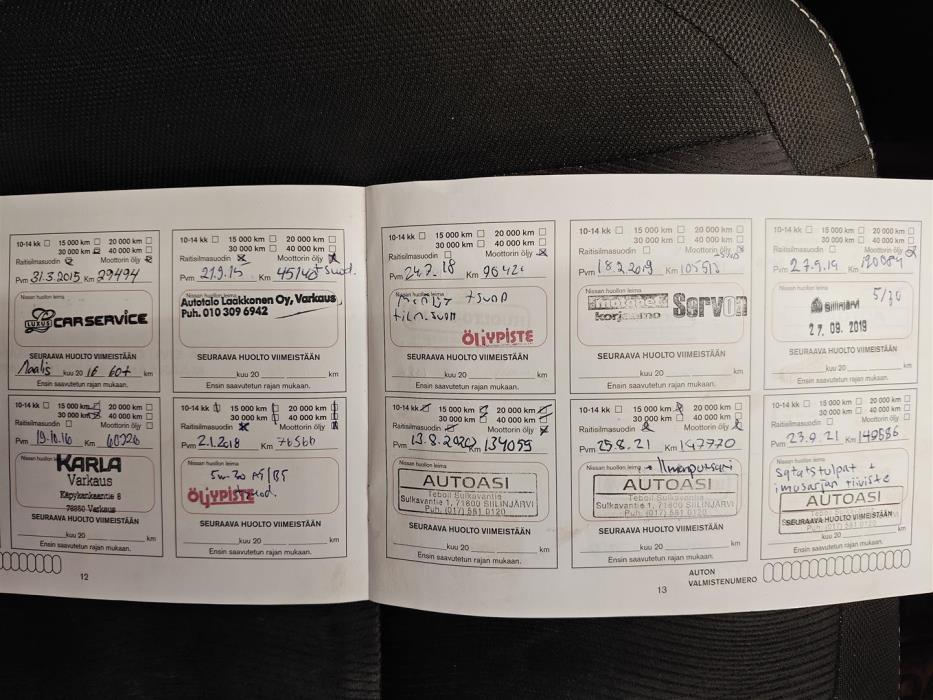 10-14 kk 15 000 km 20 000 km
30 000 km 40 000 km
Raitisilmasuodin Moottorin öljy
Pvm 31.3.2015 Km 29494
Nissan huollon leima
LUXUS CARSERVICE
SEURAAVA HUOLTO VIIMEISTÄÄN
Maalis kuu 20 16 60t km
Ensin saavutetun rajan mukaan.
10-14 kk 15 000 km 20 000 km
30 000 km 40 000 km
Raitisilmasuodin Moottorin öljy
Pvm 21.9.15 Km 45146
Autotalo Laakkonen Oy, Varkaus
Puh. 010 309 6942
SEURAAVA HUOLTO VIIMEISTÄÄN
kuu 20 km
Ensin saavutetun rajan mukaan.
10-14 kk 15 000 km 20 000 km
30 000 km 40 000 km
Raitisilmasuodin Moottorin öljy
Pvm 19.10.16 Km 60226
Nissan huollon leima
KARLA
Varkaus
Käpykankaantie 8
78850 Varkaus
SEURAAVA HUOLTO VIIMEISTÄÄN
kuu 20 km
Ensin saavutetun rajan mukaan.
10-14 kk 15 000 km 20 000 km
30 000 km 40 000 km
Raitisilmasuodin Moottorin öljy
Pvm 2.1.2018 Km 76566
Nissan huollon leima
5w-30
ÖLJYPISTE
SEURAAVA HUOLTO VIIMEISTÄÄN
kuu 20 km
Ensin saavutetun rajan mukaan.
12
10-14 kk 15 000 km 20 000 km
30 000 km 40 000 km
Raitisilmasuodin Moottorin öljy
Pvm 24.7.18 Km 90420
Nissan huollon leima
ÖLJYPISTE
SEURAAVA HUOLTO VIIMEISTÄÄN
kuu 20 km
Ensin saavutetun rajan mukaan.
10-14 kk 15 000 km 20 000 km
30 000 km 40 000 km
Raitisilmasuodin Moottorin öljy
Pvm 18.2.2019 Km
Nissan huollon leima
korjaamo
SEURAAVA HUOLTO VIIMEISTÄÄN
kuu 20 km
Ensin saavutetun rajan mukaan.
10-14 kk 15 000 km 20 000 km
30 000 km 40 000 km
Raitisilmasuodin Moottorin öljy
Pvm 27.9.19 Km 120084
Nissan huollon leima
5/30
Siilinjärvi
27. 09. 2019
SEURAAVA HUOLTO VIIMEISTÄÄN
kuu 20 km
Ensin saavutetun rajan mukaan.
10-14 kk 15 000 km 20 000 km
30 000 km 40 000 km
Raitisilmasuodin Moottorin öljy
Pvm 13.8.2020 Km 134059
Nissan huollon leima
AUTOASI
Teboil Sulkavantie
Sulkavantie 1, 71800 SIILINJÄRVI
Puh. (017) 581 0120
SEURAAVA HUOLTO VIIMEISTÄÄN
kuu 20 km
Ensin saavutetun rajan mukaan.
10-14 kk 15 000 km 20 000 km
30 000 km 40 000 km
Raitisilmasuodin Moottorin öljy
Pvm 25.8.21 Km 147770
Nissan huollon leima
AUTOASI
Teboil Sulkavantie
Sulkavantie 1, 71800 SIILINJÄRVI
Puh. (017) 581 0120
SEURAAVA HUOLTO VIIMEISTÄÄN
kuu 20 km
Ensin saavutetun rajan mukaan.
10-14 kk 15 000 km 20 000 km
30 000 km 40 000 km
Raitisilmasuodin Moottorin öljy
Pvm 23.9.21 Km 149586
Nissan huollon leima
sytytstulpat +
imusarjan tiiviste
AUTOASI
SEURAAVA HUOLTO VIIMEISTÄÄN
Puh. (017) 581 0120
kuu 20 km
Ensin saavutetun rajan mukaan.
AUTON
VALMISTENUMERO
13